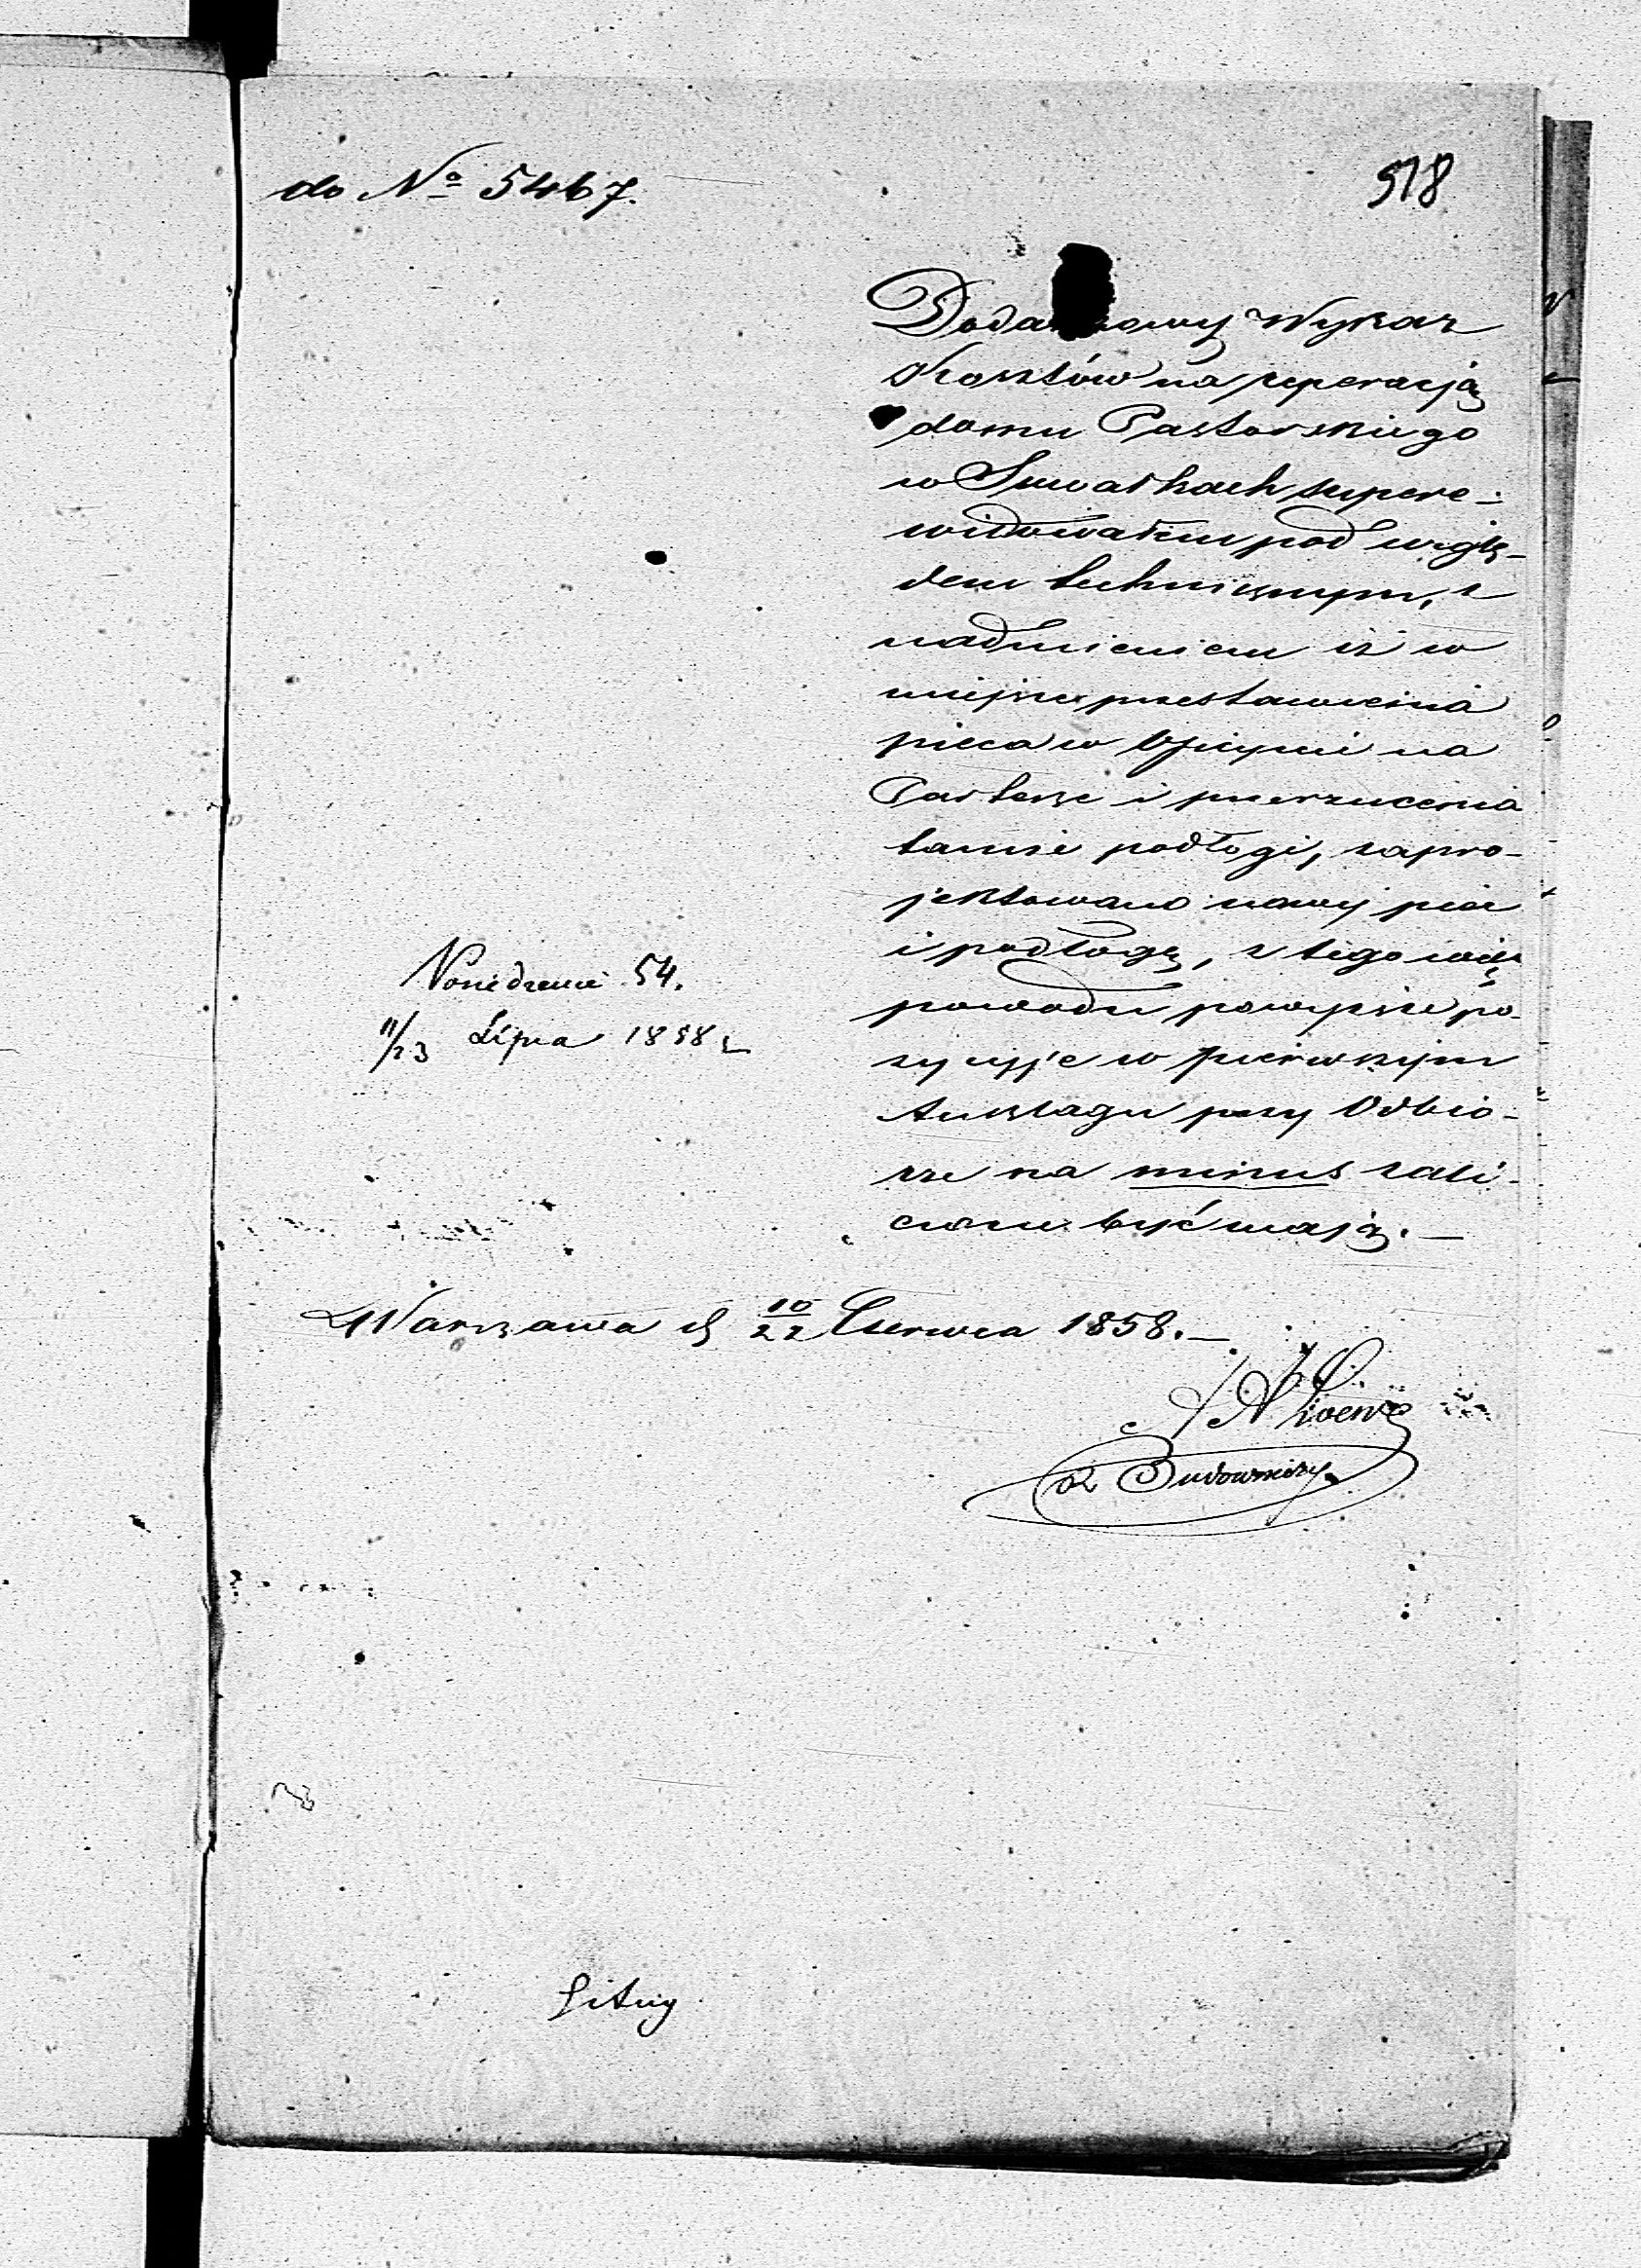 do No 5467.
518
Dodatkowy Wykaz
Kosztów na reperacją
domu Pastorskiego
w Suwałkach supere-
widowałem pod wzglę-
dem technicznym, z
nadmieniem iż w
miejsce przestawienia
pieca w Oficynie na
Parterze i przerzucenia
tamże podłogi, zapro-
jektowano nowy piec
i podłogę, z tego więc
powodu powyższe po-
zycyje w pierwszym
Anszlagu przy Odbio-
rze na minus zali-
czone być mają.
Posiedzenie 54.
11/23 Lipca 1858 r.
Warszawa d 10/22 Czerwca 1858.
Budowniczy